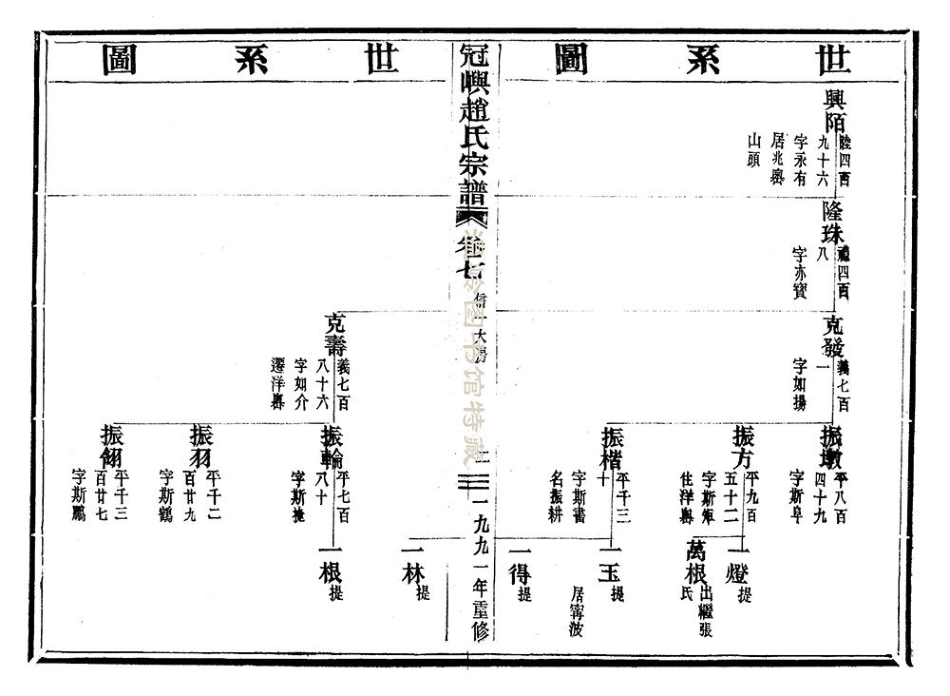 世系圖
興陌
陸四百
九十六
字永有
居兆嶴
山頭
隆珠
禮四百
八
字亦寶
克發
義七百
一
字如揚
振墩
平八百
四十九
字斯阜
振方
平九百
五十二
字斯矩
住洋嶴
一燈
提
萬根
出繼張
氏
振楷
平千三
十
字斯書
名振耕
一玉
提
居寧波
一得
提
冠嶼趙氏宗譜
卷七
信一大房
一九九一年重修
圖书馆特藏
世系圖
一林
提
克壽
義七百
八十六
字如介
遷洋嶴
振輪
平七百
八十
一根
提
振羽
平千二
百廿九
字斯鶴
平千三
百廿七
字斯鵬